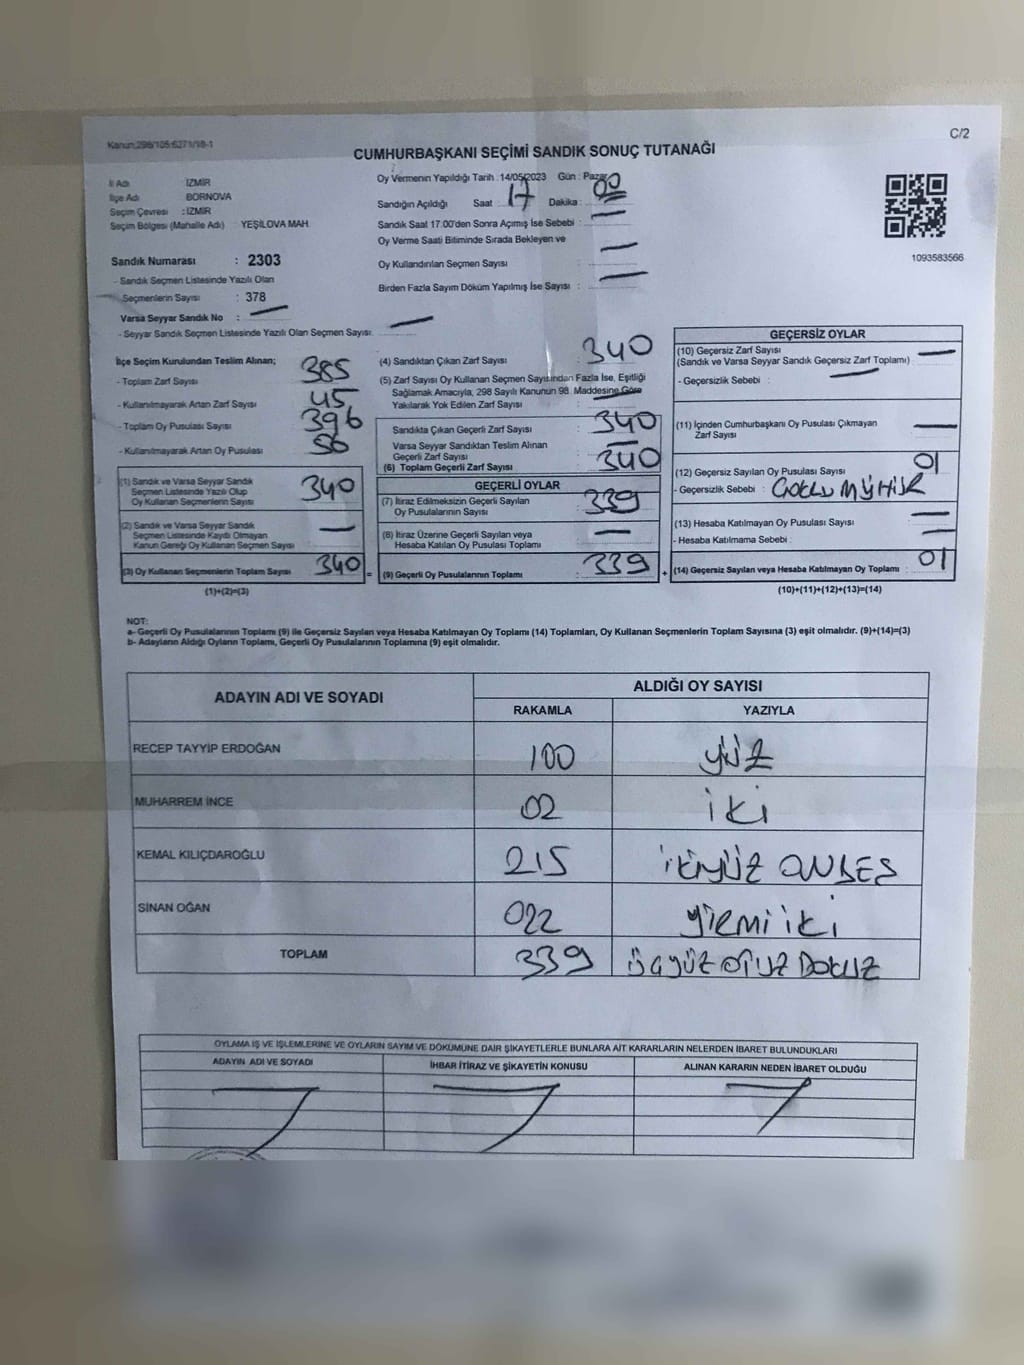 Kanun:298/105:6271/18-1
C/2
CUMHURBAŞKANI SEÇİMİ SANDIK SONUÇ TUTANAĞI
İl Adı : İZMİR
İlçe Adı : BORNOVA
Seçim Çevresi : İZMİR
Seçim Bölgesi (Mahalle Adı) : YEŞİLOVA MAH.
Sandık Numarası : 2303
- Sandık Seçmen Listesinde Yazılı Olan
Seçmenlerin Sayısı : 378
Varsa Seyyar Sandık No :
- Seyyar Sandık Seçmen Listesinde Yazılı Olan Seçmen Sayısı:
Oy Vermenin Yapıldığı Tarih : 14/05/2023 Gün : Pazar
Sandığın Açıldığı Saat : 17 Dakika : 00
Sandık Saat 17:00'den Sonra Açımış İse Sebebi :
Oy Verme Saati Bitiminde Sırada Bekleyen ve
Oy Kullandırılan Seçmen Sayısı :
Birden Fazla Sayım Döküm Yapılmış İse Sayısı :
1093583566
İlçe Seçim Kurulundan Teslim Alınan;
- Toplam Zarf Sayısı : 385
- Kullanılmayarak Artan Zarf Sayısı : 45
- Toplam Oy Pusulası Sayısı : 396
- Kullanılmayarak Artan Oy Pusulası : 56
(1) Sandık ve Varsa Seyyar Sandık
Seçmen Listesinde Yazılı Olup
Oy Kullanan Seçmenlerin Sayısı : 340
(2) Sandık ve Varsa Seyyar Sandık
Seçmen Listesinde Kaydı Olmayan
Kanun Gereği Oy Kullanan Seçmen Sayısı :
(3) Oy Kullanan Seçmenlerin Toplam Sayısı : 340 =
(1)+(2)=(3)
(4) Sandıktan Çıkan Zarf Sayısı : 340
(5) Zarf Sayısı Oy Kullanan Seçmen Sayısından Fazla İse, Eşitliği
Sağlamak Amacıyla, 298 Sayılı Kanunun 98. Maddesine Göre
Yakılarak Yok Edilen Zarf Sayısı :
Sandıkta Çıkan Geçerli Zarf Sayısı : 340
Varsa Seyyar Sandıktan Teslim Alınan
Geçerli Zarf Sayısı :
(6) Toplam Geçerli Zarf Sayısı : 340
GEÇERLİ OYLAR
(7) İtiraz Edilmeksizin Geçerli Sayılan
Oy Pusulalarının Sayısı : 339
(8) İtiraz Üzerine Geçerli Sayılan veya
Hesaba Katılan Oy Pusulası Toplamı :
(9) Geçerli Oy Pusulalarının Toplamı : 339 +
GEÇERSİZ OYLAR
(10) Geçersiz Zarf Sayısı
(Sandık ve Varsa Seyyar Sandık Geçersiz Zarf Toplamı) :
- Geçersizlik Sebebi :
(11) İçinden Cumhurbaşkanı Oy Pusulası Çıkmayan
Zarf Sayısı :
(12) Geçersiz Sayılan Oy Pusulası Sayısı : 01
- Geçersizlik Sebebi : ÇOKLU MÜHÜR
(13) Hesaba Katılmayan Oy Pusulası Sayısı :
- Hesaba Katılmama Sebebi :
(14) Geçersiz Sayılan veya Hesaba Katılmayan Oy Toplamı : 01
(10)+(11)+(12)+(13)=(14)
NOT:
a- Geçerli Oy Pusulalarının Toplamı (9) ile Geçersiz Sayılan veya Hesaba Katılmayan Oy Toplamı (14) Toplamları, Oy Kullanan Seçmenlerin Toplam Sayısına (3) eşit olmalıdır. (9)+(14)=(3)
b- Adayların Aldığı Oyların Toplamı, Geçerli Oy Pusulalarının Toplamına (9) eşit olmalıdır.
ADAYIN ADI VE SOYADI
ALDIĞI OY SAYISI
RAKAMLA YAZIYLA
RECEP TAYYİP ERDOĞAN 100 yüz
MUHARREM İNCE 02 iki
KEMAL KILIÇDAROĞLU 215 ikiyüz ONBEŞ
SİNAN OĞAN 022 yirmi iki
TOPLAM 339 üçyüz otuz Dokuz
OYLAMA İŞ VE İŞLEMLERİNE VE OYLARIN SAYIM VE DÖKÜMÜNE DAİR ŞİKAYETLERLE BUNLARA AİT KARARLARIN NELERDEN İBARET BULUNDUKLARI
ADAYIN ADI VE SOYADI İHBAR İTİRAZ VE ŞİKAYETİN KONUSU ALINAN KARARIN NEDEN İBARET OLDUĞU